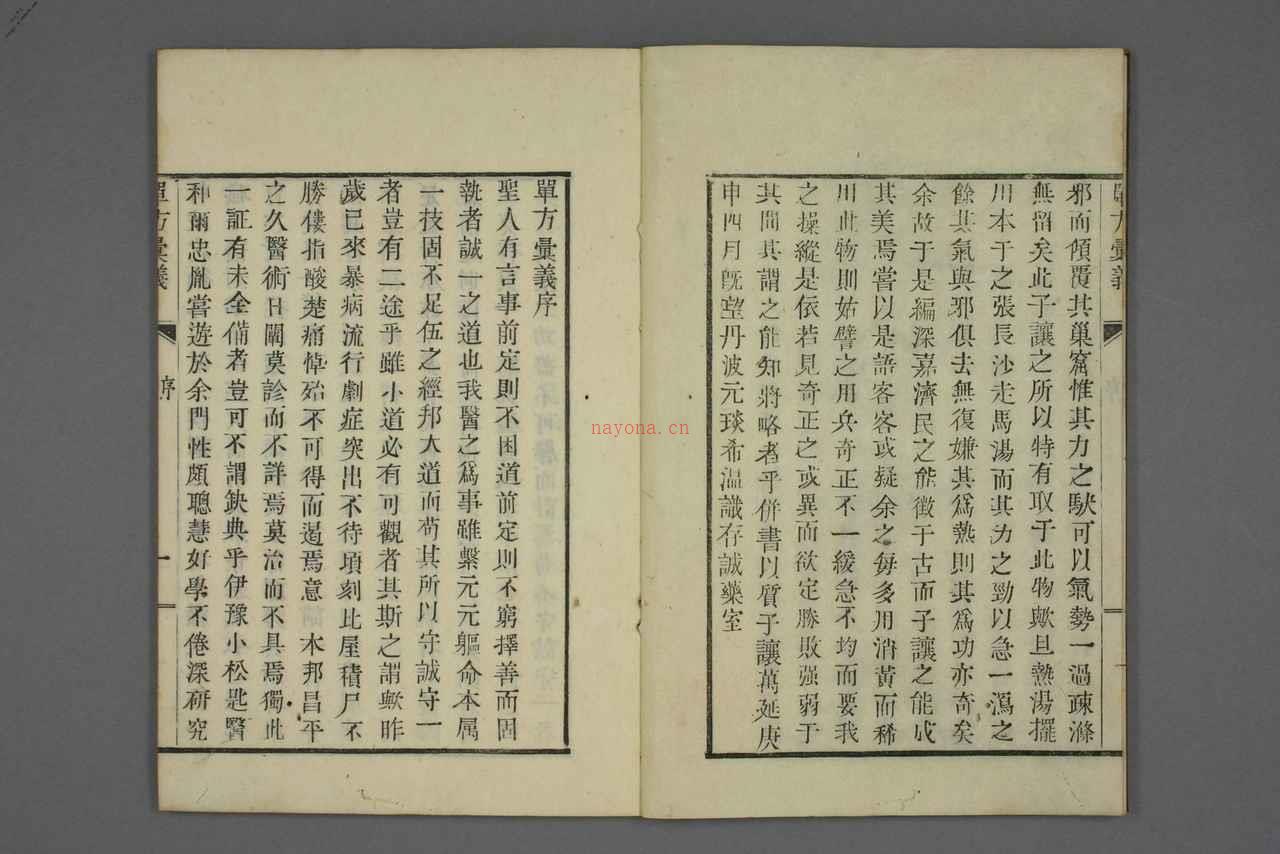 單方彙義
邪而傾覆其巢窟惟其力之駃可以氣勢一過疎滌
無留矣此子讓之所以特有取于此物歟且熱湯擢
川本于之張長沙走馬湯而其力之勁以急一瀉之
餘其氣與邪俱去無復嫌其爲熱則其爲功亦奇矣
余故于是編深嘉濟民之能徵于古而子讓之能成
其美焉嘗以是語客客或疑余之每多用消黃而稀
用此物則姑譬之用兵奇正不一緩急不均而要我
之操縱是依若見奇正之或異而欲定勝敗强弱于
其間其謂之能知將略者乎併書以質子讓萬延庚
申四月旣望丹波元琰希温識存誠藥室
單方彙義序
聖人有言事前定則不困道前定則不窮擇善而固
執者誠一之道也我醫之爲事雖繫元元軀命本属
一技固不足伍之經邦大道而苟其所以守誠守一
者豈有二途乎雖小道必有可觀者其斯之謂歟昨
歲已來暴病流行劇症突出不待頃刻比屋積尸不
勝僂指酸楚痛悼殆不可得而遏焉意 本邦昌平
之久醫術日闡莫診而不詳焉莫治而不具焉獨此
一証有未全備者豈可不謂缺典乎伊豫小松匙醫
和爾忠胤嘗遊於余門性頗聰慧好學不倦深研究
單方彙義
序
一
nayona.cn